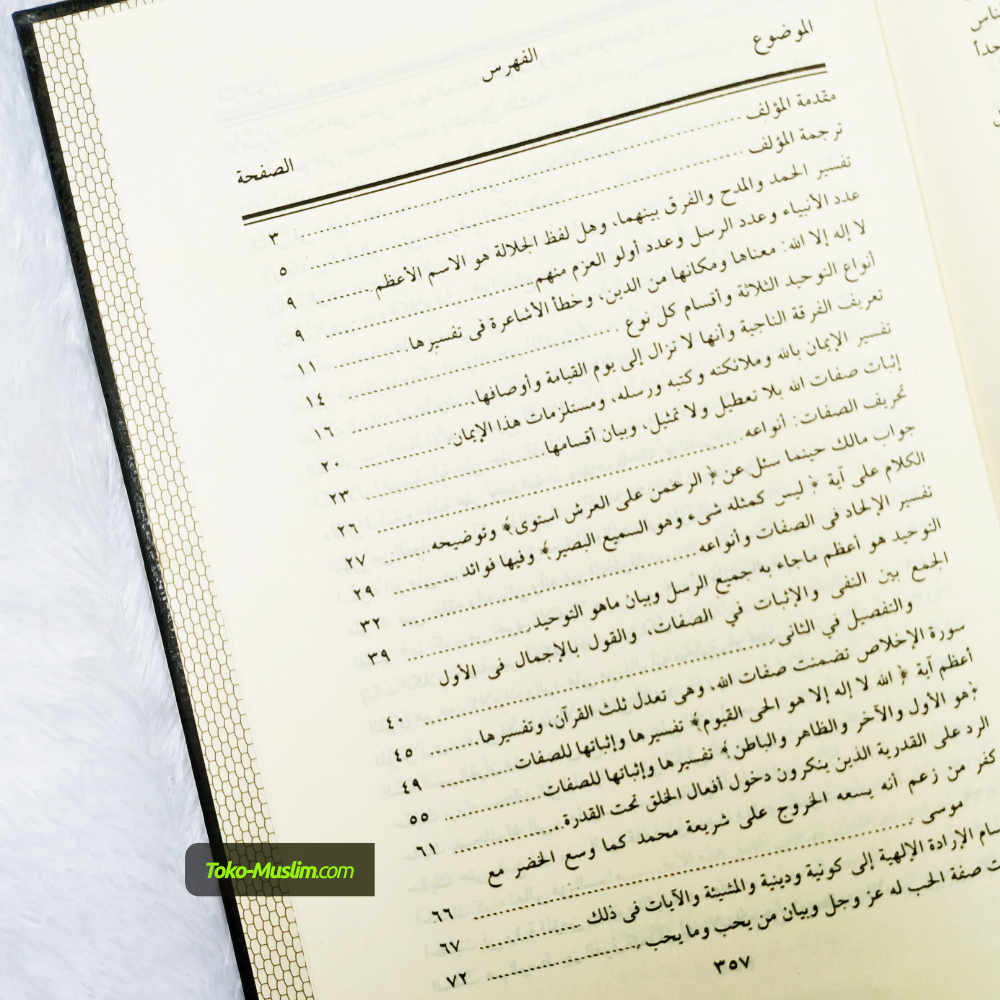 الفهرس
الموضوع
الصفحة
مقدمة المؤلف ..... ٣
ترجمة المؤلف ..... ٥
تفسير الحمد والمدح والفرق بينهما، وهل لفظ الجلالة هو الاسم الأعظم ..... ٩
عدد الأنبياء وعدد الرسل وعدد أولو العزم منهم ..... ٩
لا إله إلا الله: معناها ومكانها من الدين، وخطأ الأشاعرة فى تفسيرها ..... ١١
أنواع التوحيد الثلاثة وأقسام كل نوع ..... ١٤
تعريف الفرقة الناجية وأنها لا تزال إلى يوم القيامة وأوصافها ..... ١٦
تفسير الإيمان بالله وملائكته وكتبه ورسله، ومستلزمات هذا الإيمان ..... ٢٠
إثبات صفات الله بلا تعطيل ولا تمثيل، وبيان أقسامها ..... ٢٣
تحريف الصفات: أنواعه ..... ٢٦
جواب مالك حينما سئل عن ﴿ الرحمن على العرش استوى﴾ وتوضيحه ..... ٢٧
الكلام على آية ﴿ ليس كمثله شىء وهو السميع البصير﴾ وفيها فوائد ..... ٢٩
تفسير الإلحاد فى الصفات وأنواعه ..... ٣٢
التوحيد هو أعظم ماجاء به جميع الرسل وبيان ماهو التوحيد ..... ٣٩
الجمع بين النفى والإثبات في الصفات، والقول بالإجمال فى الأول
والتفصيل في الثانى ..... ٤٠
سورة الإخلاص تضمنت صفات الله، وهى تعدل ثلث القرآن، وتفسيرها ..... ٤٥
أعظم آية ﴿ الله لا إله إلا هو الحى القيوم﴾ تفسيرها وإثباتها للصفات ..... ٤٩
﴿هو الأول والآخر والظاهر والباطن﴾ تفسيرها وإثباتها للصفات ..... ٥٥
الرد على القدرية الذين ينكرون دخول أفعال الخلق تحت القدرة ..... ٦١
كفر من زعم أنه يسعه الخروج على شريعة محمد كما وسع الخضر مع
موسى ..... ٦٦
الإرادة الإلهية إلى كونية ودينية والمشيئة والآيات فى ذلك ..... ٦٧
صفة الحب له عز وجل وبيان من يحب وما يحب ..... ٧٢
٣٥٧
Toko-Muslim.com